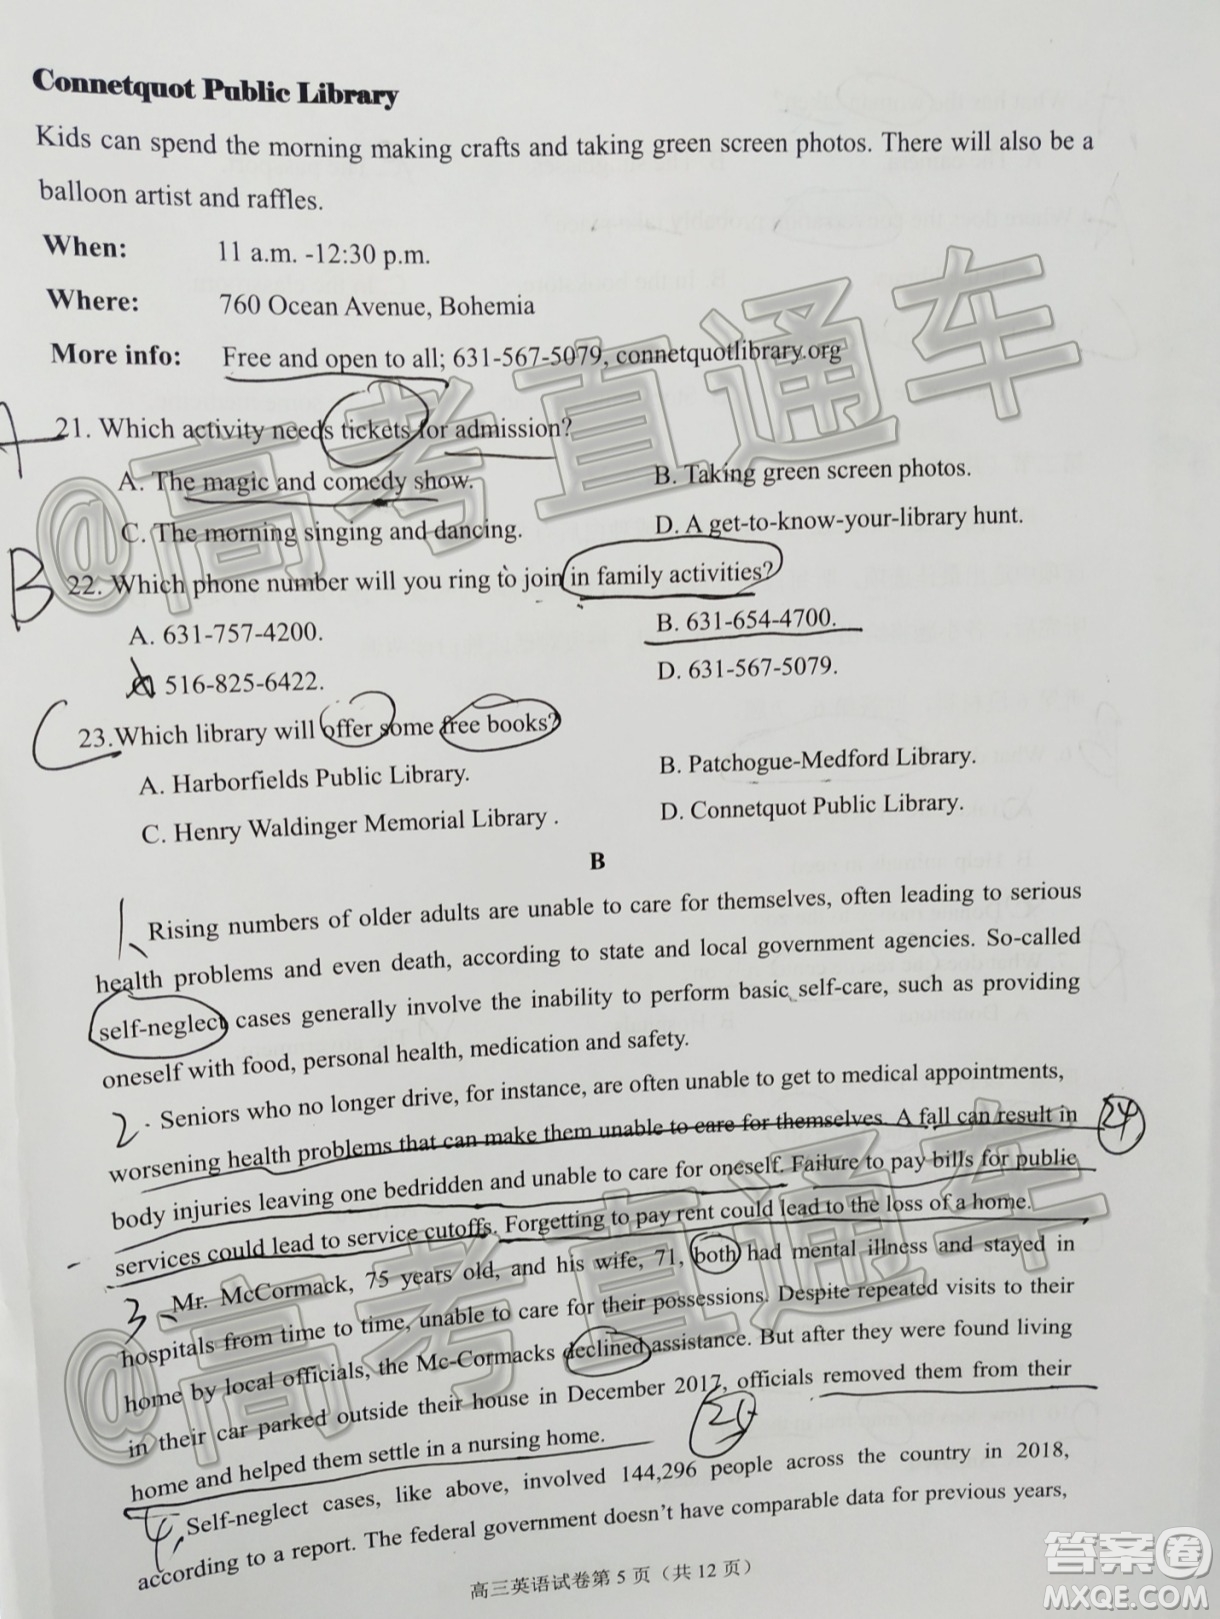 Connetquot Public Library
Kids can spend the morning making crafts and taking green screen photos. There will also be a
balloon artist and raffles.
When: 11 a.m. -12:30 p.m.
Where: 760 Ocean Avenue, Bohemia
More info: Free and open to all; 631-567-5079, connetquotlibrary.org
A 21. Which activity needs tickets for admission?
A. The magic and comedy show. B. Taking green screen photos.
C. The morning singing and dancing. D. A get-to-know-your-library hunt.
B 22. Which phone number will you ring to join in family activities?
A. 631-757-4200. B. 631-654-4700.
516-825-6422. D. 631-567-5079.
C 23.Which library will offer some free books?
A. Harborfields Public Library. B. Patchogue-Medford Library.
C. Henry Waldinger Memorial Library . D. Connetquot Public Library.
B
1、Rising numbers of older adults are unable to care for themselves, often leading to serious
health problems and even death, according to state and local government agencies. So-called
self-neglect cases generally involve the inability to perform basic self-care, such as providing
oneself with food, personal health, medication and safety.
2. Seniors who no longer drive, for instance, are often unable to get to medical appointments,
worsening health problems that can make them unable to care for themselves. A fall can result in 24
body injuries leaving one bedridden and unable to care for oneself. Failure to pay bills for public
services could lead to service cutoffs. Forgetting to pay rent could lead to the loss of a home.
3、Mr. McCormack, 75 years old, and his wife, 71, both had mental illness and stayed in
hospitals from time to time, unable to care for their possessions. Despite repeated visits to their
home by local officials, the Mc-Cormacks declined assistance. But after they were found living
in their car parked outside their house in December 2017, officials removed them from their
home and helped them settle in a nursing home.
4、Self-neglect cases, like above, involved 144,296 people across the country in 2018,
according to a report. The federal government doesn't have comparable data for previous years,
高三英语试卷第 5 页（共 12 页）
@高考直通车
@高考直通车
答案卷
MXQE.COM